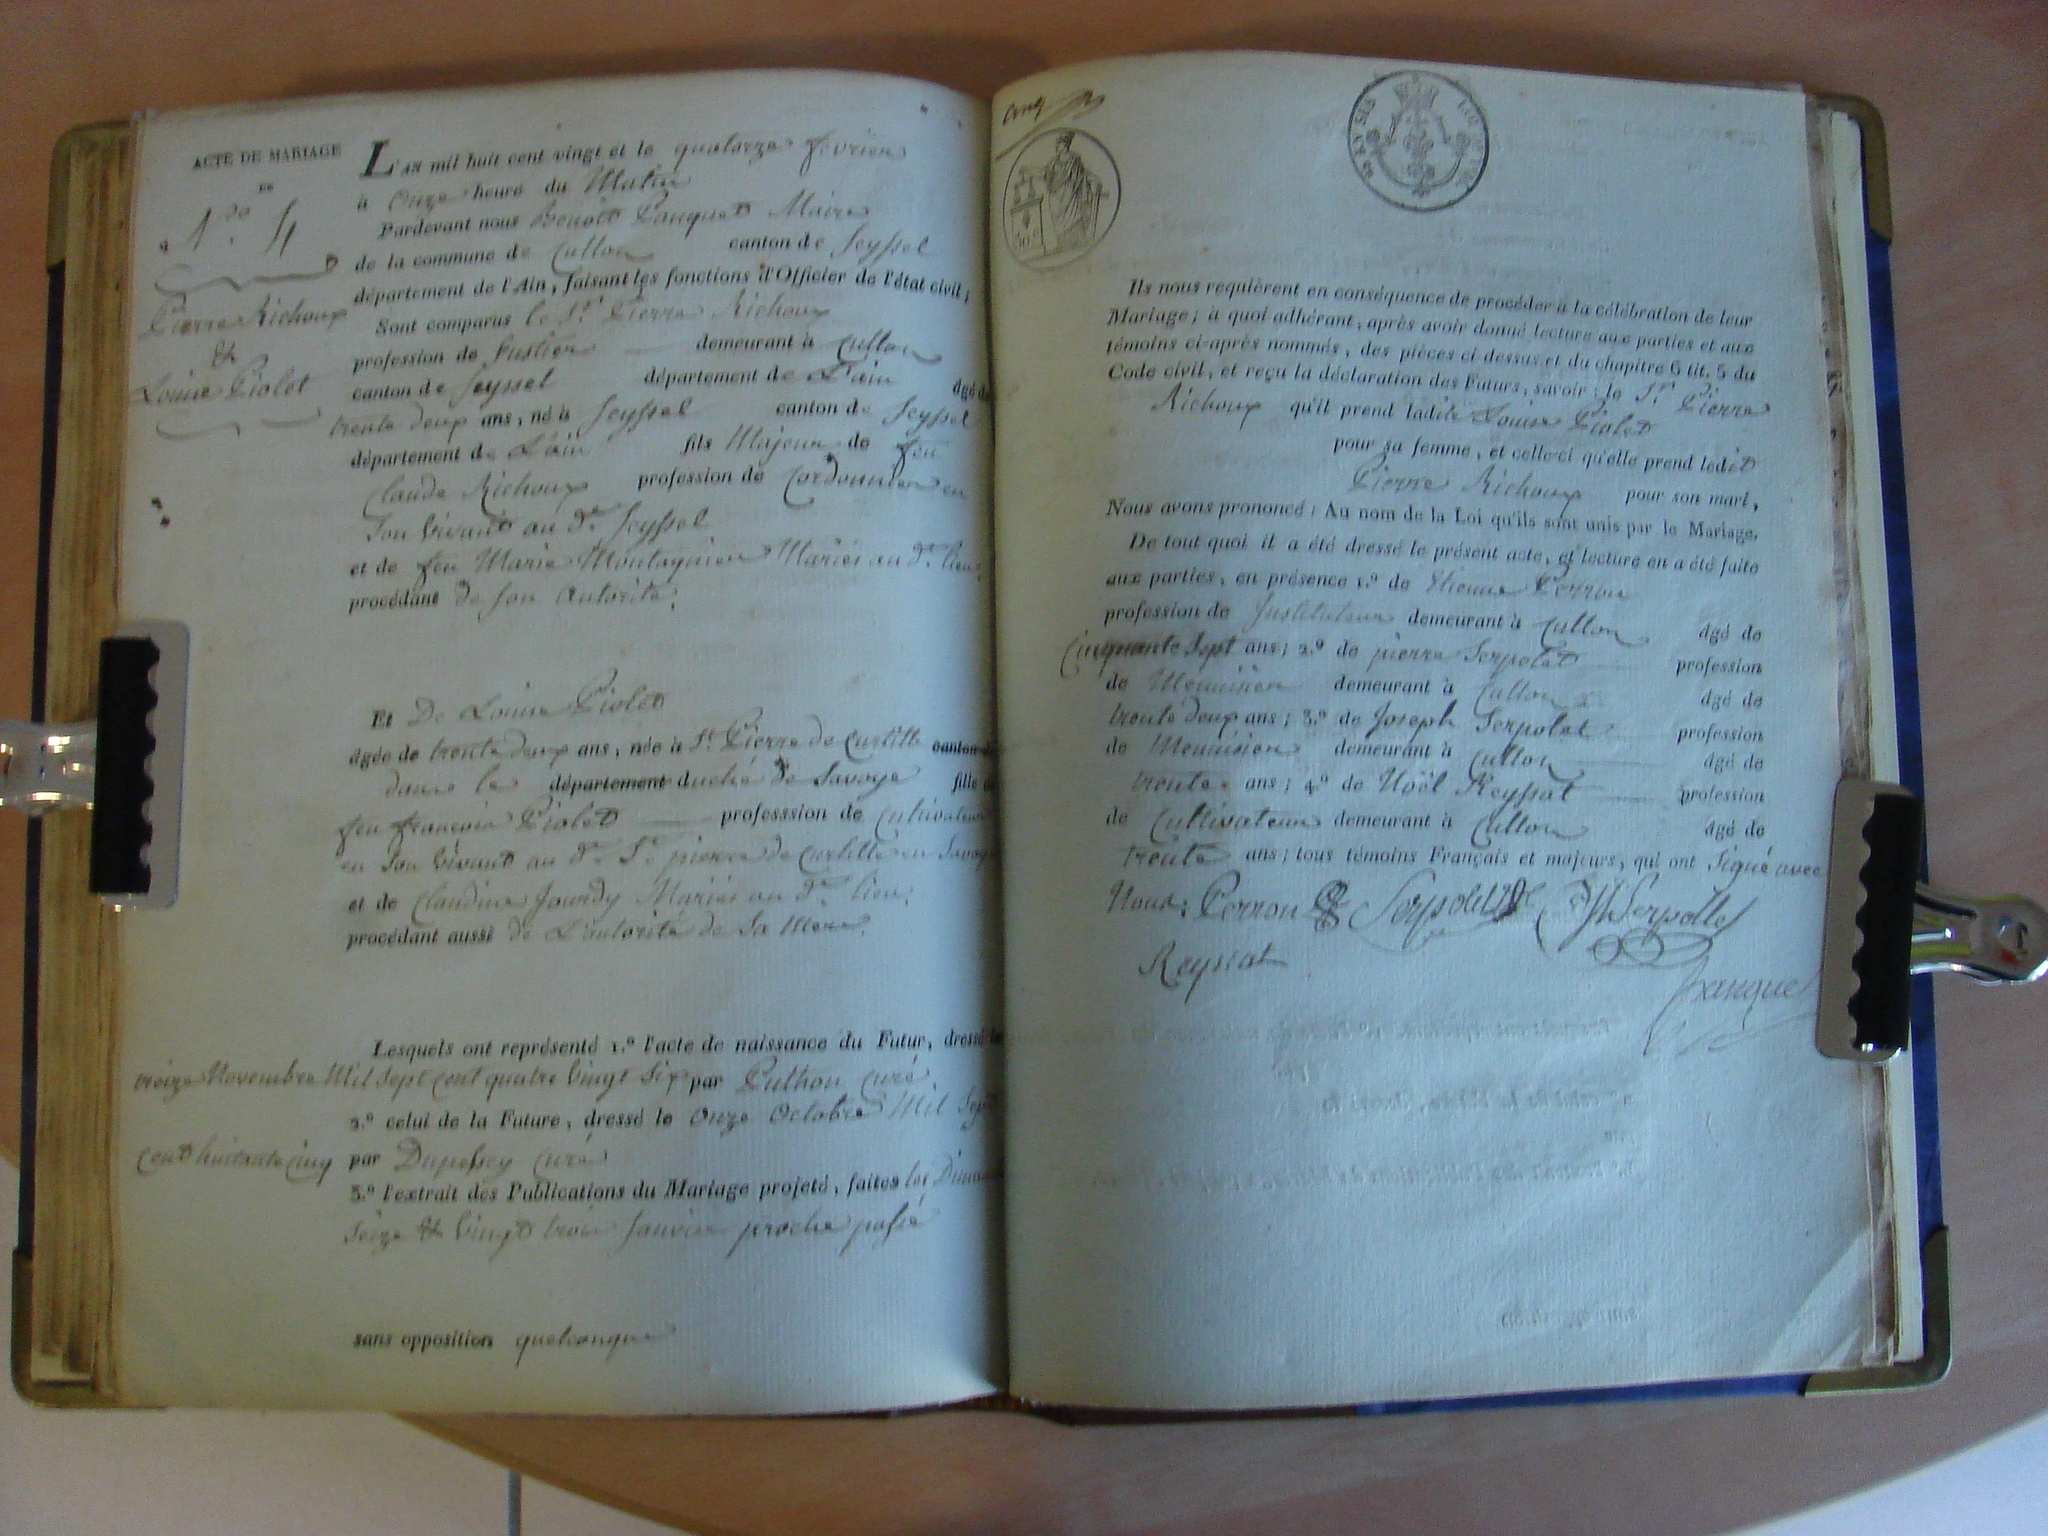 ACTE DE MARIAGE
DE
N.º 4
Pierre Richoux
&
Louise Piolet
L'an mil huit cent vingt et le quatorze février
à onze heure du Matin
Pardevant nous Benoit Panquet Maire
de la commune de Culloz canton de Seyssel
département de l'Ain, faisant les fonctions d'Officier de l'état civil;
Sont comparus le Sr. Pierre Richoux
profession de demeurant à Culloz
canton de Seyssel département de L'ain âgé de
trente deux ans, né à Seyssel canton de Seyssel
département de L'ain fils Majeur de feu
Claude Richoux profession de Cordonnier en
Son vivant au dt. Seyssel
et de feu Marie Montagnier Mariés au dt. lieu,
procédant de son autorité.
Et De Louise Piolet
âgée de trente deux ans, née à St. Pierre de Curtille canton de
dans le département duché de Savoye fille de
feu françois Piolet professsion de cultivateur
en Son vivant au dt. St. pierre de Curtille en Savoye
et de Claudine Jourdy Mariés au dt. lieu.
procédant aussi de L'autorité de Sa Mere.
Lesquels ont représenté 1.º l'acte de naissance du Futur, dressé le
treize Novembre Mil Sept cent quatre vingt Six par Puthon curé.
2.º celui de la Future, dressé le onze Octobre Mil Sept
cent huitante cinq par Dupessey curé
3.º l'extrait des Publications du Mariage projeté, faites les
Seize & vingt trois Janvier proche passé
sans opposition quelconque
Ils nous requièrent en conséquence de procéder à la célébration de leur
Mariage; à quoi adhérant, après avoir donné lecture aux parties et aux
témoins ci-après nommés, des pièces ci-dessus et du chapitre 6 tit. 5 du
Code civil, et reçu la déclaration des Futurs, savoir: le Sr. Pierre
Richoux qu'il prend ladite Louise Piolet
pour sa femme, et celle-ci qu'elle prend ledit
Pierre Richoux pour son mari,
Nous avons prononcé: Au nom de la Loi qu'ils sont unis par le Mariage,
De tout quoi il a été dressé le présent acte, et lecture en a été faite
aux parties, en présence 1.º de Etienne Perron
profession de Instituteur demeurant à Culloz âgé de
Cinquante Sept ans; 2.º de pierre Serpolet profession
de Menuisier demeurant à Culloz âgé de
trente deux ans; 3.º de Joseph Serpolet profession
de Menuisier demeurant à Culloz âgé de
trente ans; 4.º de Noël Reyssat profession
de Cultivateur demeurant à Culloz âgé de
trente ans; tous témoins Français et majeurs, qui ont Signé avec
Nous: Perron Serpolet Jh Serpollet
Reyssat
Panquet